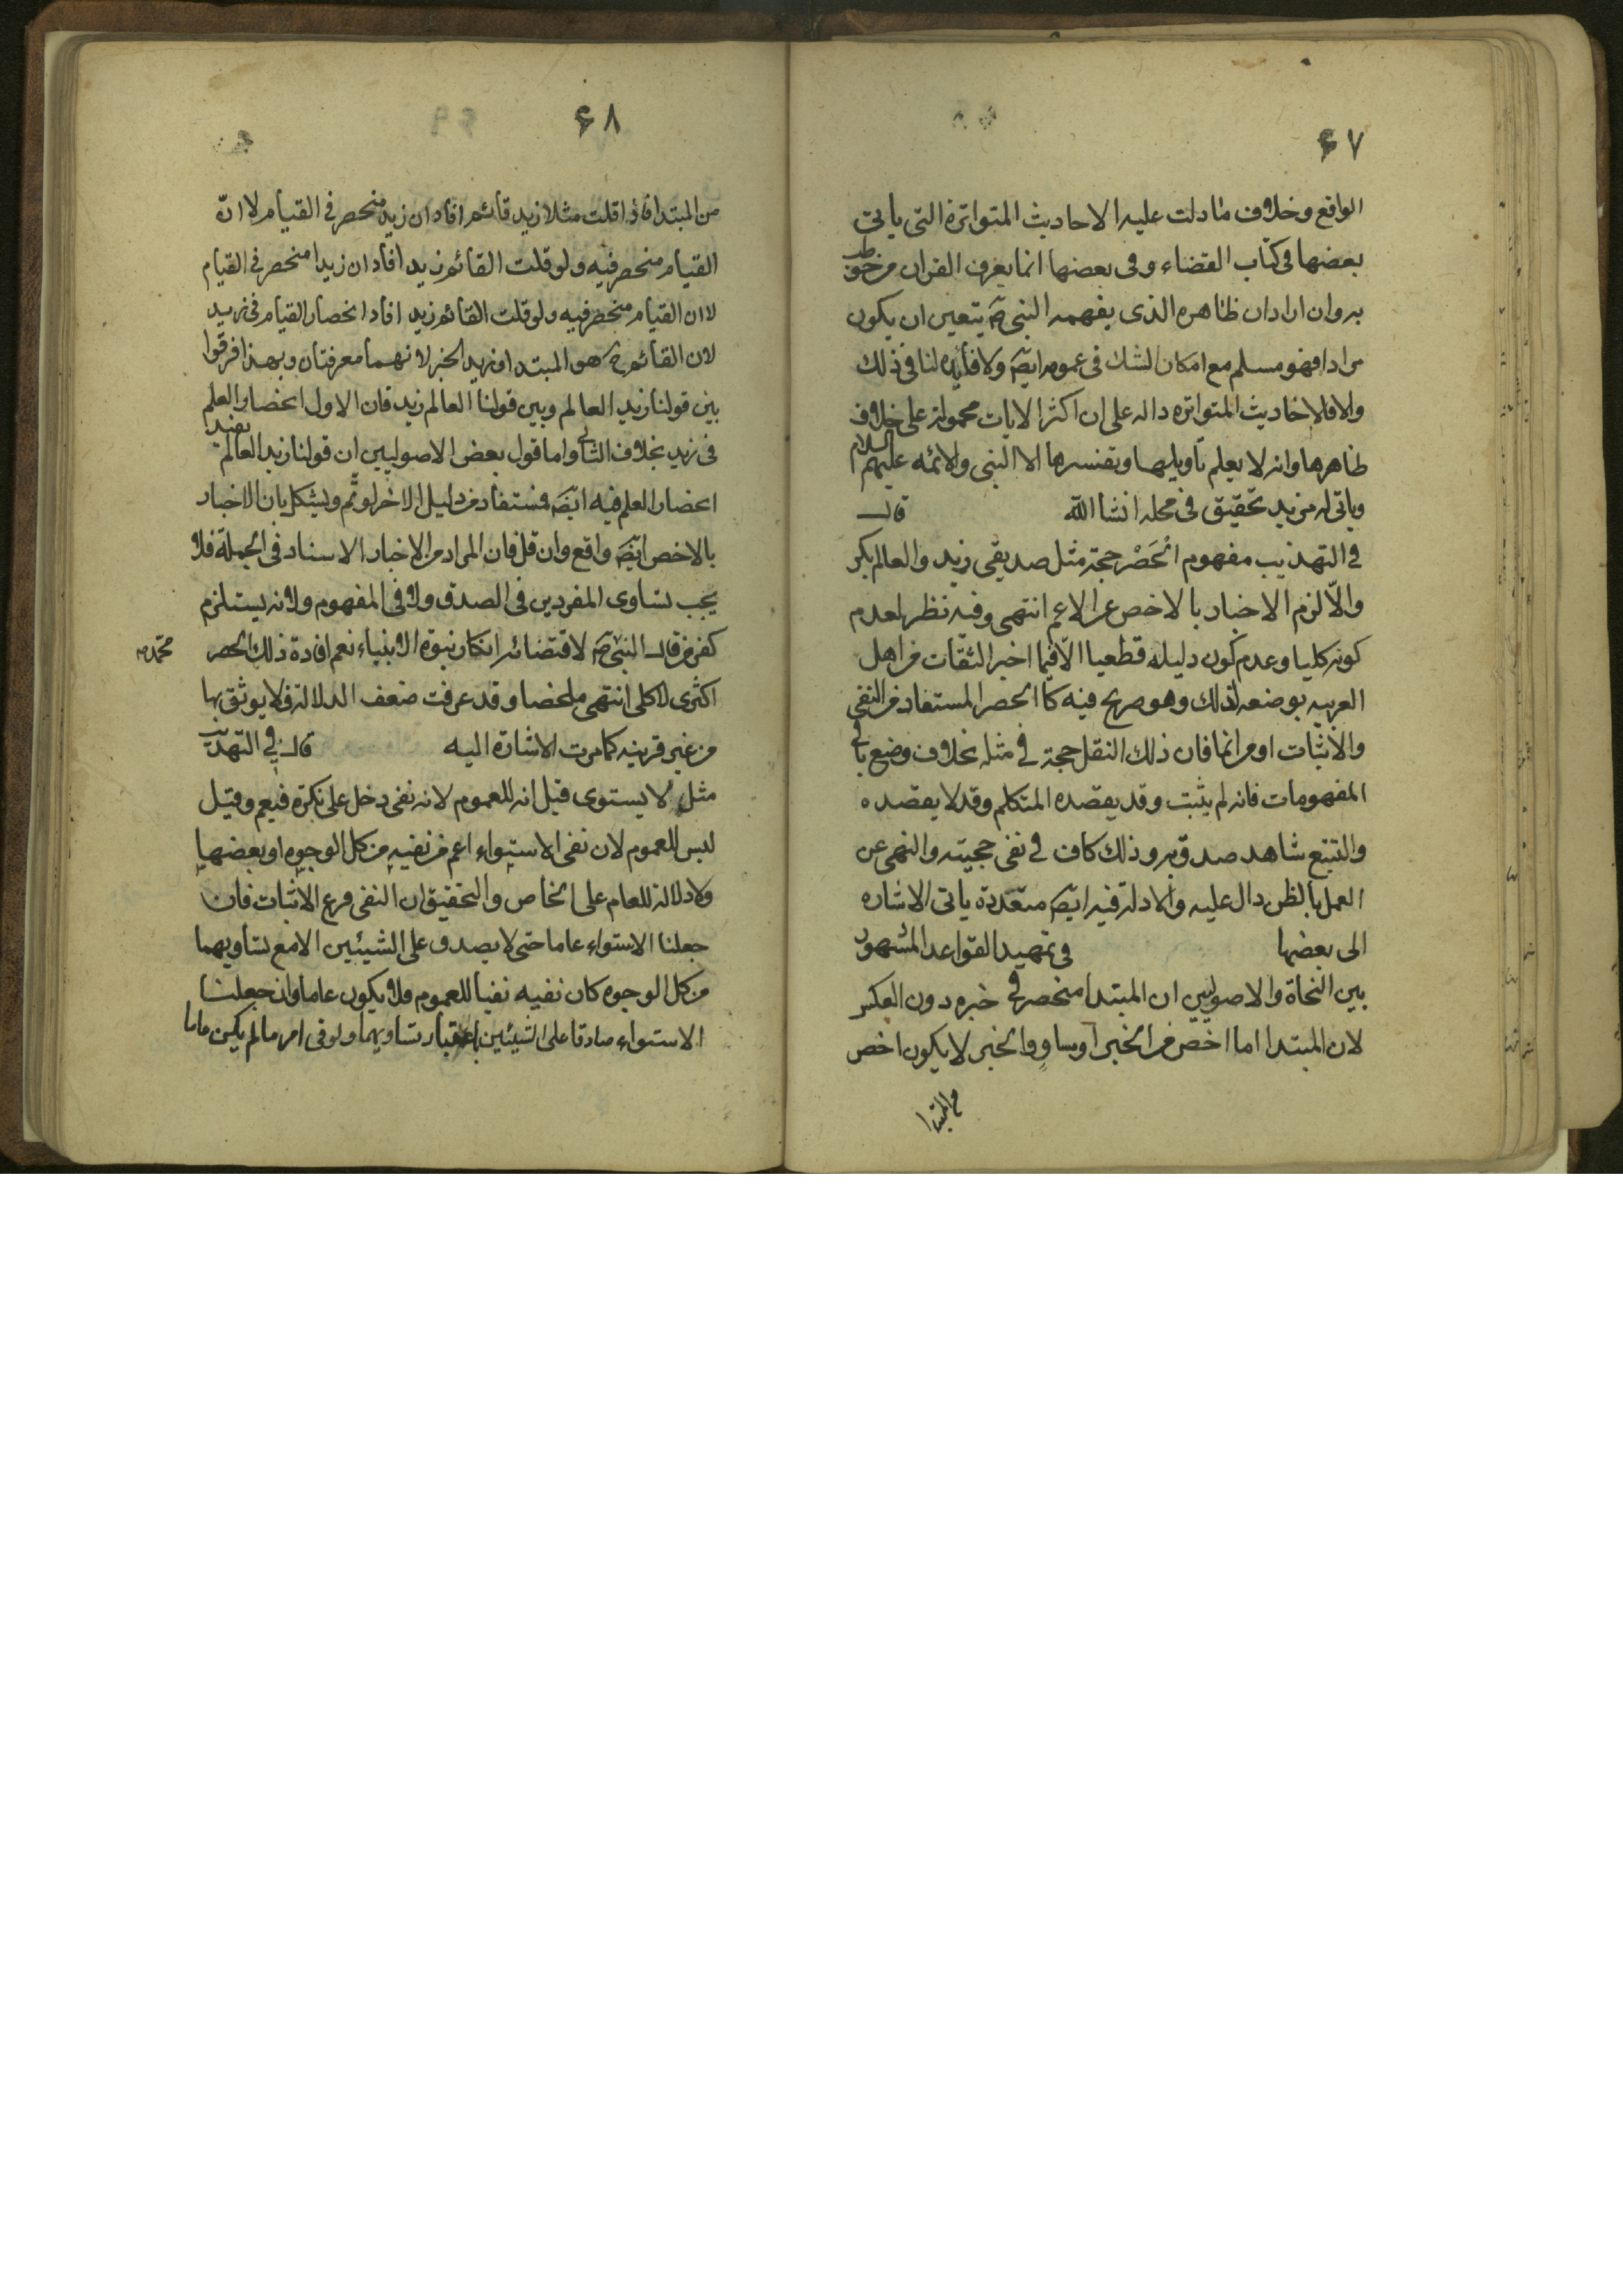 ٤٧
الواقع وخلاف ما دلت عليه الاحاديث المتواترة التى ياتى
بعضها فى كتاب القضاء وفى بعضها انما يعرف القران من خوطب
به وان اراد ان ظاهره الذى يفهمه النبى ص يتعين ان يكون
مرادا فهو مسلم مع امكان الشك فى عمومه ايضا ولا فايده لنا فى ذلك
والا فالاحاديث المتواتره داله على ان اكثر الايات محموله على خلاف
ظاهرها وانه لا يعلم تاويلها وتفسرها الا النبى والائمه عليهم السلام
وياتى له مزيد تحقيق فى محله انشا الله قال
فى التهذيب مفهوم الحَصْر حجة مثل صديقى زيد والعالم بكر
والّا لزم الاخبار بالاخص عن الاعم انتهى وفيه نظر لعدم
كونه كليا وعدم كون دليله قطعيا الا فيما اخبر الثقات من اهل
العربيه بوضعه لذلك وهو صريح فيه كالحصر المستفاد من النفى
والاثبات او من انما فان ذلك النقل حجة فى مثله بخلاف وضع باقى
المفهومات فانه لم يثبت وقد يقصده المتكلم وقد لا يقصده
والتتبع شاهد صدق به وذلك كاف فى نفى حجيته والنهى عن
العمل بالظن دال عليه والادلة فيه ايضا متعددة ياتى الاشاره
الى بعضها فى تمهيد القواعد المشهور
بين النحاة والاصوليين ان المبتدا منحصر فى خبره دون العكس
لان المبتدا اما اخص من الخبر او مساوٍ والخبر لا يكون اخص
من المبتدا
٤٨
من المبتدا فاذا قلت مثلا زيد قائم افاد ان زيد منحصر فى القيام لا انّ
القيام منحصر فيه ولو قلت القائم زيد افاد ان زيدا منحصر فى القيام
لا ان القيام منحصر فيه ولو قلت القائم زيد افاد انحصار القيام فى زيد
لان القائم ح هو المبتدا وزيد الخبر لانهما معرفتان وبهذا فرقوا
بين قولنا زيد العالم وبين قولنا العالم زيد فان الاول انحصار العلم
فى زيد بخلاف الثانى واما قول بعض الاصوليين ان قولنا زيد العالم يفيد
انحصار العلم فيه ايضا فمستفاد من دليل الاخر لو تم ويشكل بان الاخبار
بالاخص ايضا واقع وان قل فان المراد من الاخبار الاسناد فى الجملة فلا
يجب تساوى المفردين فى الصدق ولا فى المفهوم ولانه يستلزم
كفر من قال النبى ص لاقتضائه انكار نبوة الانبياء نعم افادة ذلك الحصر
محمد ص
اكثرى لا كلى انتهى ملخصا وقد عرفت ضعف الدلالة فلا يوثق بها
من غير قرينه كما مرت الاشارة اليه قال فى التهذيب
مثل لا يستوى قيل انه للعموم لانه نفى دخل على نكرة فيعم وقيل
ليس للعموم لان نفى الاستواء اعم من نفيه من كل الوجوه او بعضها
ولا دلالة للعام على الخاص والتحقيق ان النفى فرع الاثبات فان
جعلنا الاستواء عاما حتى لا يصدق على الشيئين الا مع تساويهما
من كل الوجوه كان نفيه نفيا للعموم فلا يكون عاما وان جعلنا
الاستواء صادقا على الشيئين باعتبار تساويهما ولو فى امر ما لم يكن عاما